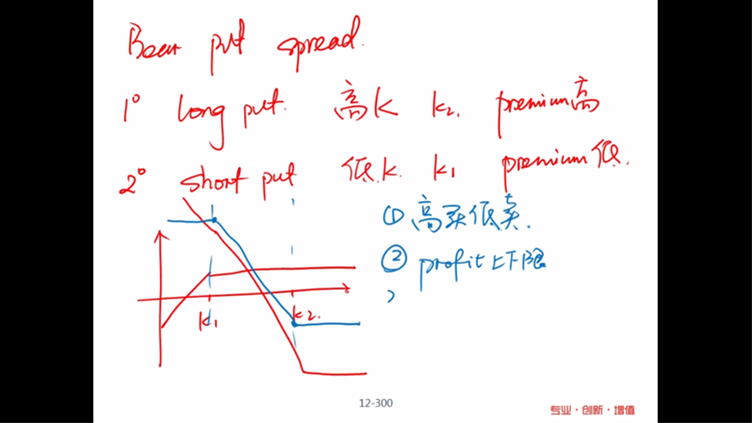 Bear put spread.
1° long put. 高K K2. premium高
2° short put 低K. K1 premium低.
① 高买低卖.
② profit 上下限
K1 K2.
12-300
专业·创新·增值